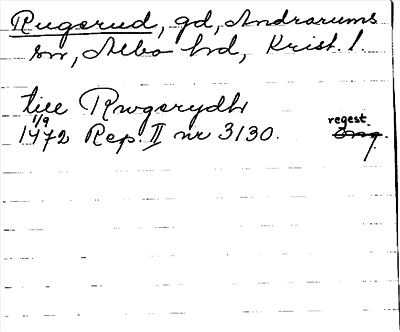 Rugerud, gd, Andrarums
sn, Albo hd, Krist. l.
till Rwgerydh
1/9
1472 Rep. II nr 3130.
regest.